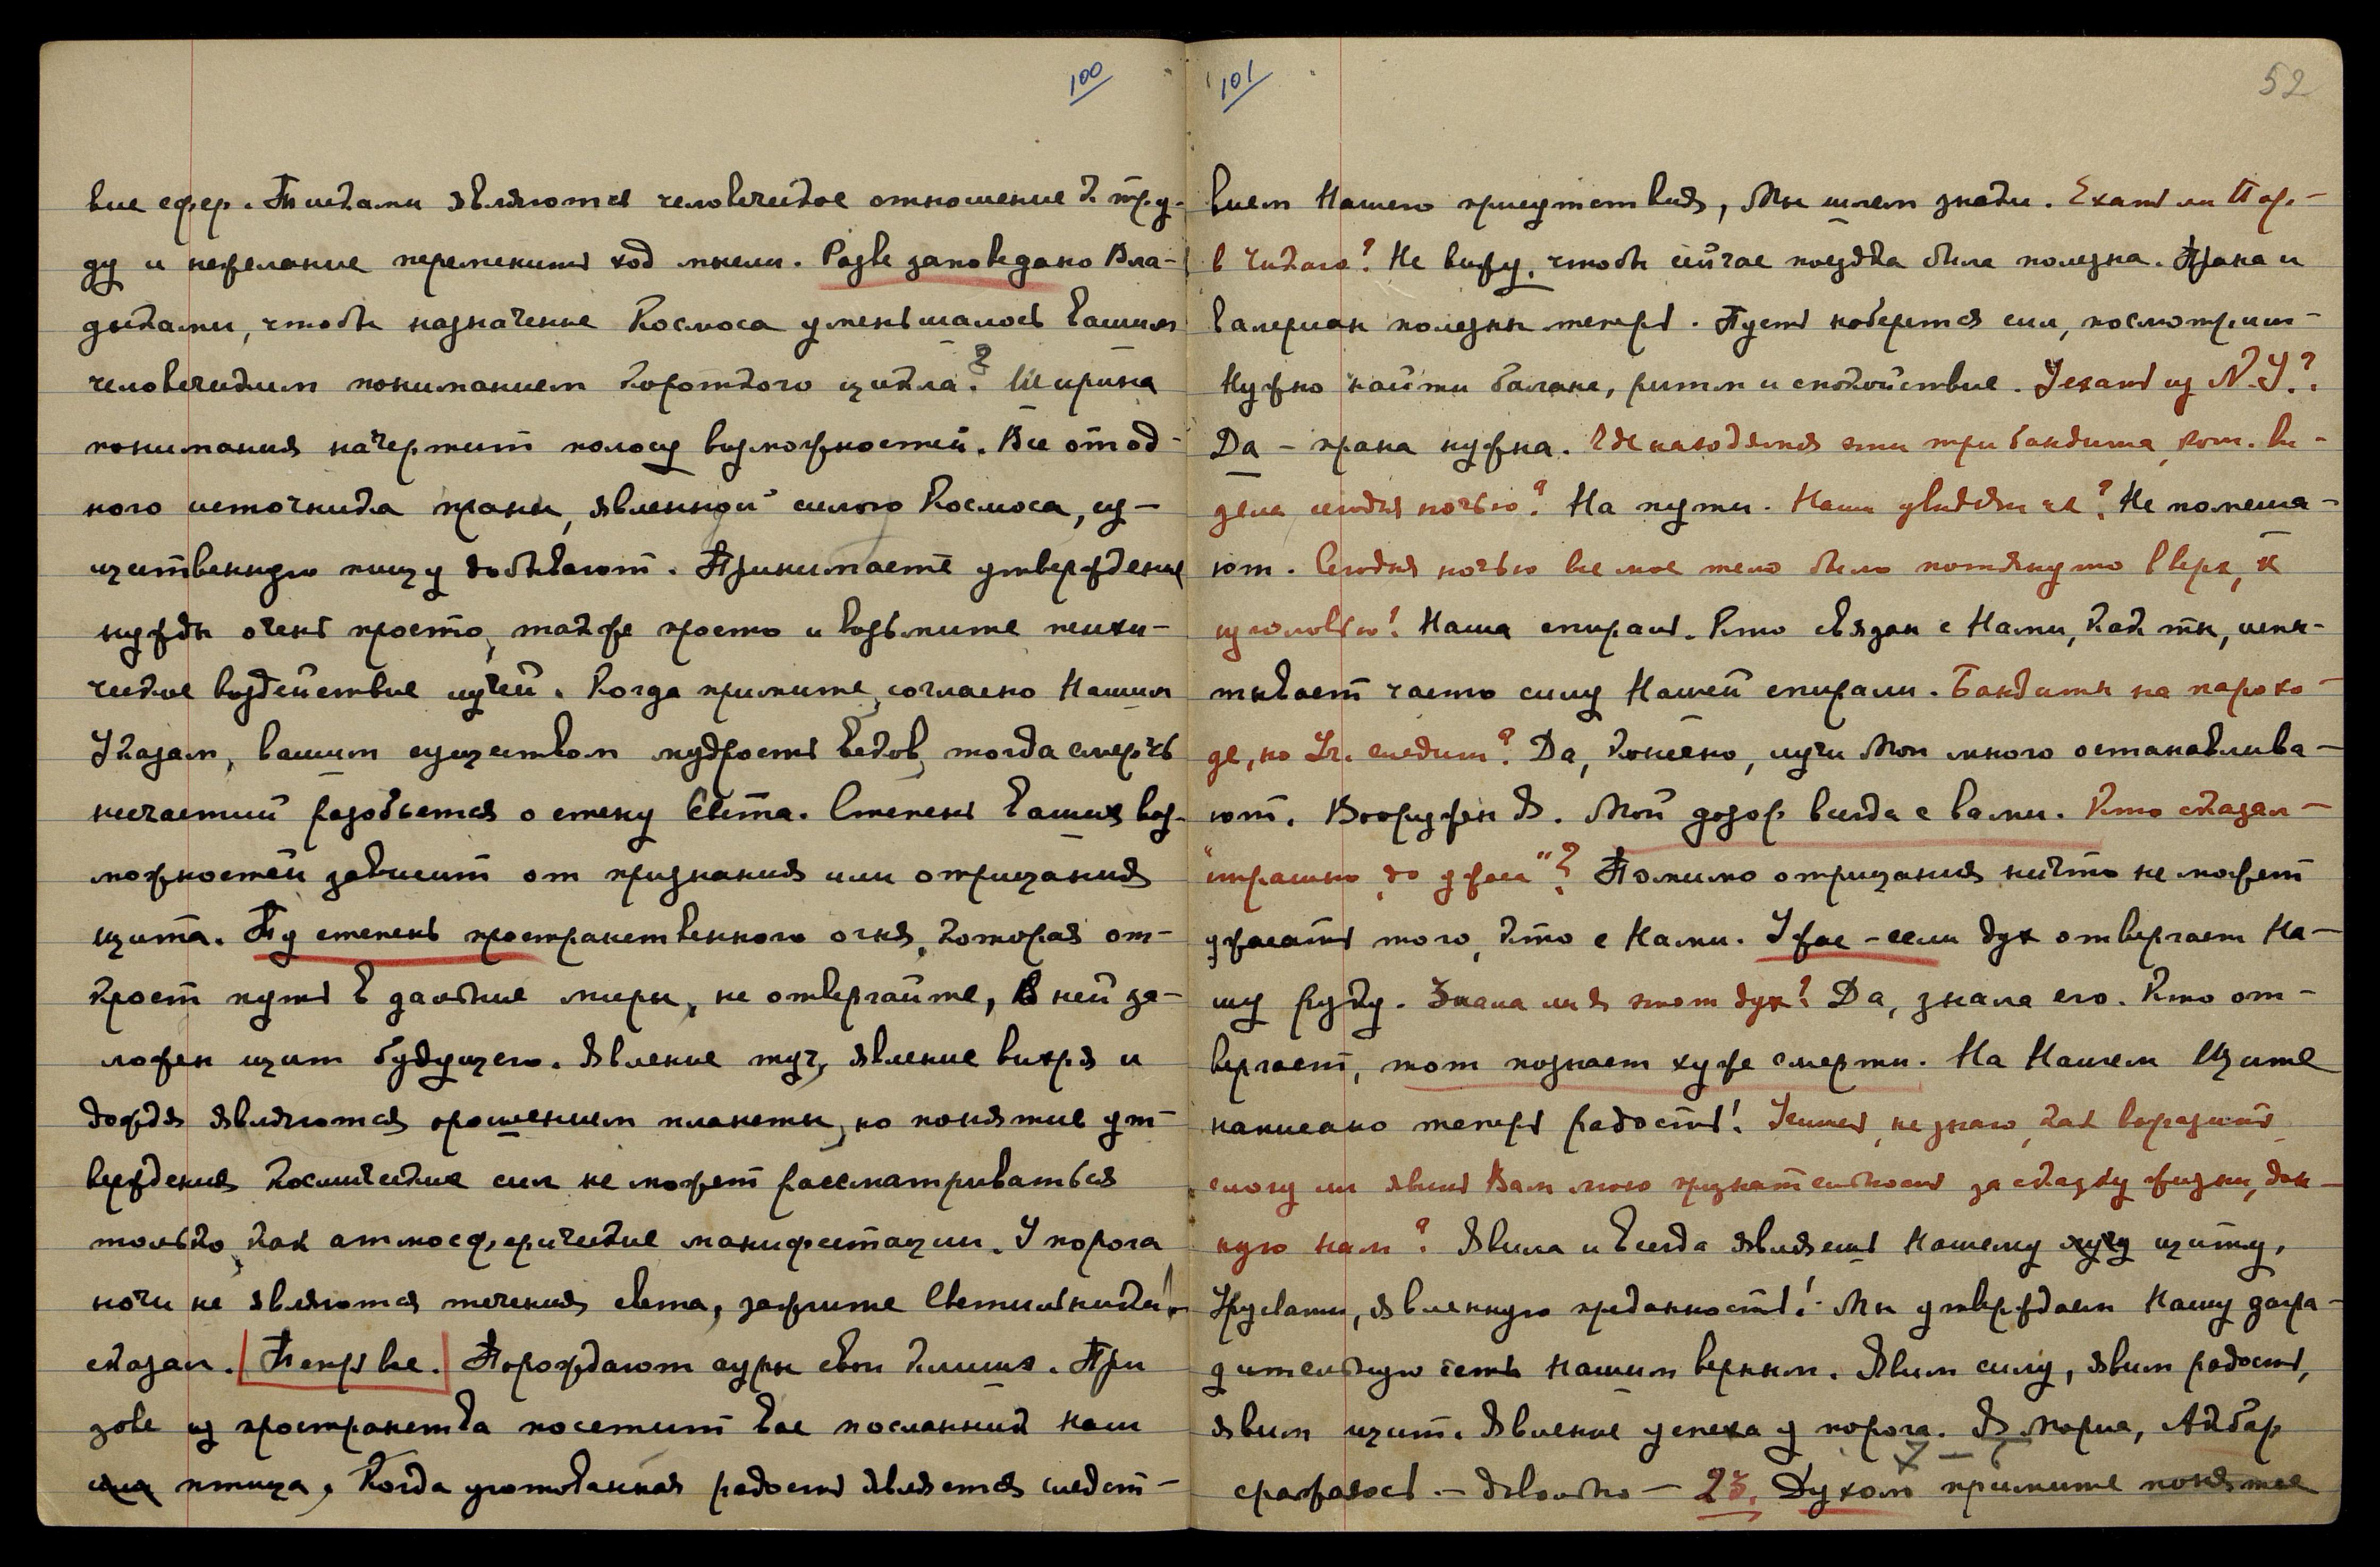 100
вие сфер. Тисками являются человеческое отношение к тру-
ду и нежелание переменить ход мысли. Разве заповедано Вла-
дыками, чтобы назначение Космоса уменьшалось вашим
человеческим пониманием короткого цикла? Ширина
понимания начертит полосу возможностей. Все от од-
ного источника праны, явленной силою Космоса, су-
щественную пищу добывают. Принимаете утверждение
нужды очень просто, также просто и возьмите психи-
ческое воздействие лучей. Когда примите, согласно Нашим
Указам, вашим существом мудрость ведов, тогда смерчь
несчастий разобьется о стену Света. Степень Ваших воз-
можностей зависит от признания или отрицания
щита. Ту степень пространственного огня, которая от-
кроет путь в дальние миры, не отвергайте, в ней за-
ложен щит будущего. Явление туч, явление вихря и
дождя являются орошением планеты, но понятие ут-
верждения космических сил не может рассматриваться
только как атмосферические манифестации. У порога
ночи не являются течения света, зажгите Светильники!
сказал. Теперь все. Порождают ауры свои клише. При
зове из пространства посетит вас посланный наш
птица, Когда уготованная радость является следст-
101
52
вием Нашего присутствия, Мы шлем знаки. Ехать ли Пор.
в Чикаго? Не вижу, чтобы сейчас поездка была полезна. Прана и
валериан полезны теперь. Пусть наберется сил, посмотрим-
Нужно найти баланс, ритм и спокойствие. Уехать из N.Y.?
Да – прана нужна. Где находятся эти три бандита, кот. ви-
дела сегодня ночью? На пути. Наши увидят их? Не помеша-
ют. Сегодня ночью все мое тело было потянуто вверх, к
изголовью! Наша спираль. Кто связан с Нами, как ты, испы-
тывает часто силу Нашей спирали. Бандиты на парохо-
де, но Уч. следит? Да, конечно, лучи Мои много останавлива-
ют. Вооружен Я. Мой дозор всегда с вами. Кто сказал –
"страшно до ужаса"? Помимо отрицания ничто не может
ужасать того, кто с Нами. Ужас – если дух отвергает На-
шу руку. Знала ли я этот дух? Да, знала его. Кто от-
вергает, тот познает хуже смерти. На Нашем Щите
написано теперь радость! не знаю, как выразить
смогу ли явить Вам мою признательность за сказку жизни, дан-
ную нам? Явила и всегда являешь Нашему щиту,
Урусвати, явленную преданность! Мы утверждаем Нашу загра-
дительную сеть Нашим верным. Явим силу, явим радость,
явим щит. Явление успеха у порога. Я Мориа, Акбар
сражаюсь – довольно – 23. Духом примите понятие